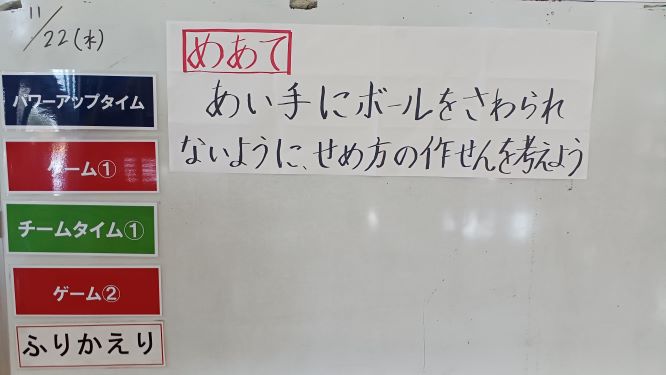 11/22(水)
めあて
あい手にボールをさわられ
ないように、せめ方の作せんを考えよう
パワーアップタイム
ゲーム①
チームタイム①
ゲーム②
ふりかえり